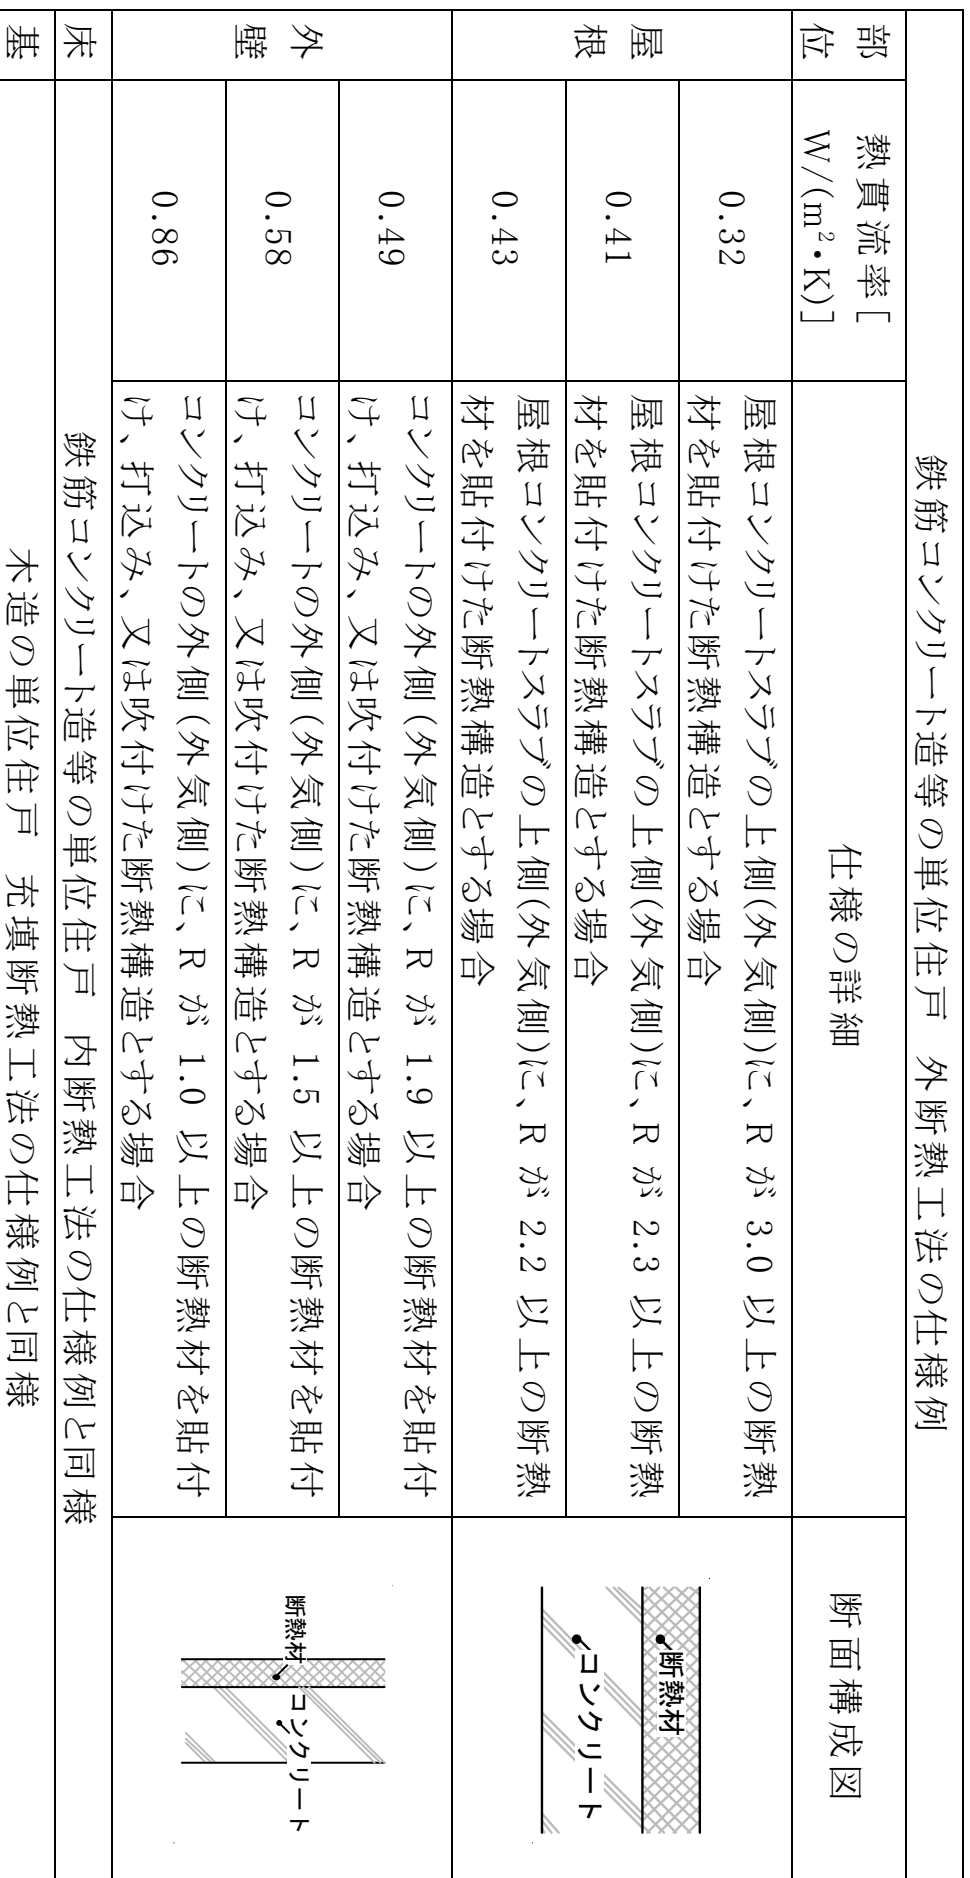 鉄筋コンクリート造等の単位住戸　外断熱工法の仕様例
部位
熱貫流率[
W/(m²・K)]
仕様の詳細
断面構成図
屋根
0.32
屋根コンクリートスラブの上側(外気側)に、R が 3.0 以上の断熱
材を貼付けた断熱構造とする場合
断熱材
コンクリート
0.41
屋根コンクリートスラブの上側(外気側)に、R が 2.3 以上の断熱
材を貼付けた断熱構造とする場合
0.43
屋根コンクリートスラブの上側(外気側)に、R が 2.2 以上の断熱
材を貼付けた断熱構造とする場合
外壁
0.49
コンクリートの外側(外気側)に、R が 1.9 以上の断熱材を貼付
け、打込み、又は吹付けた断熱構造とする場合
断熱材
コンクリート
0.58
コンクリートの外側(外気側)に、R が 1.5 以上の断熱材を貼付
け、打込み、又は吹付けた断熱構造とする場合
0.86
コンクリートの外側(外気側)に、R が 1.0 以上の断熱材を貼付
け、打込み、又は吹付けた断熱構造とする場合
床
鉄筋コンクリート造等の単位住戸　内断熱工法の仕様例と同様
基
木造の単位住戸　充填断熱工法の仕様例と同様